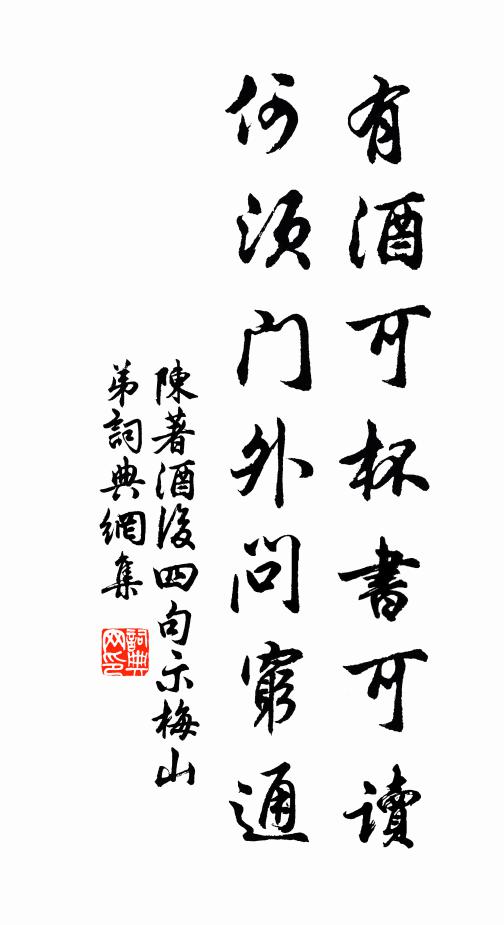 有酒可杯書可讀
何須門外問窮通
陳著酒後四句示梅山
弟詞典網集
詞典网印